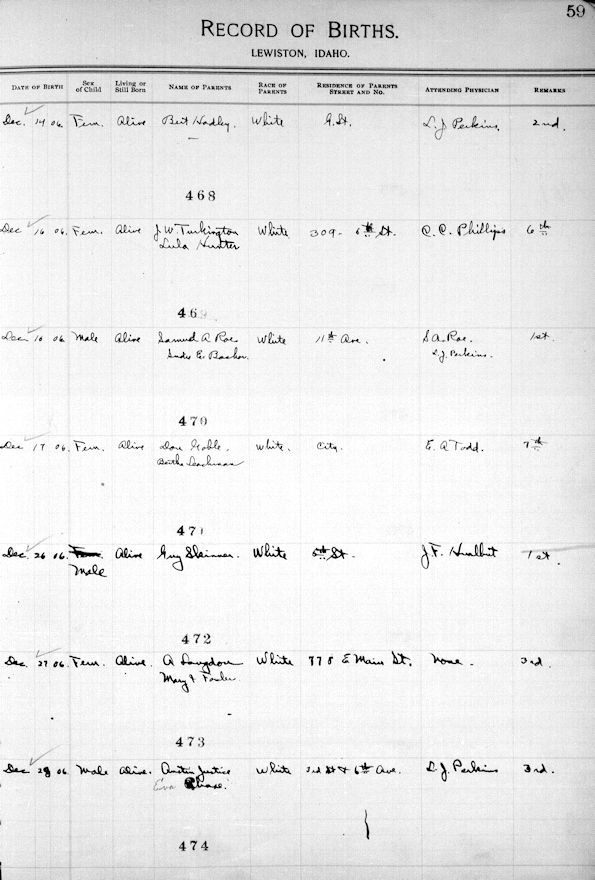 59
RECORD OF BIRTHS.
LEWISTON, IDAHO.
DATE OF BIRTH Sex of Child Living or Still Born NAME OF PARENTS RACE OF PARENTS RESIDENCE OF PARENTS STREET AND NO. ATTENDING PHYSICIAN REMARKS
Dec. 14 06. Fem. Alive Bert Hadley. White G. St. L. J. Perkins. 2nd.
468
Dec 16 06. Fem. Alive J. W. Turkington White 309 - 6th St. C. C. Phillips 6th
Lula Hunter
469
Dec 16 06 Male Alive Samuel A Roe White 11th Ave. S A. Roe. 1st.
E. L. J. Perkins.
470
Dec 17 06. Fem. Alive Don Goble. White. City. E. A Todd. 7th
Bertha
471
Dec. 26 06. Fem. Alive Guy Skinner. White 5th St. J. F. Hurlbut 1st.
Male
472
Dec. 27 06. Fem. Alive. A Langdon White 778 E Main St. None. 3rd.
Mary F
473
Dec 28 06. Male Alive. Austin Justice White 3rd St & 6th Ave. L. J. Perkins 3rd.
Eva Chase.
474